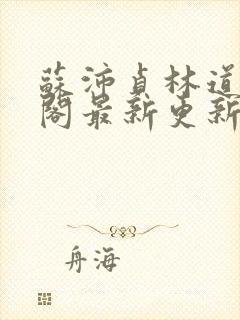 蘇沛貞林道
閣最新更新
舟海